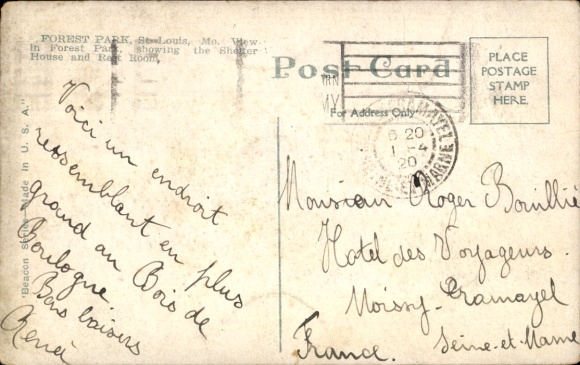 FOREST PARK, St. Louis, Mo. View
in Forest Park, showing the Shelter
House and Rest Room.
Post Card
For Address Only
PLACE
POSTAGE
STAMP
HERE.
"Beacon Series" Made in U. S. A."
CRAMAYEL
6 20
1 - 4
20
MARNE
Voici un endroit
ressemblant en plus
grand au Bois de
Boulogne
Bons baisers
René
Monsieur Roger Bouillié
Hotel des Voyageurs.
Moissy-Cramayel
Seine-et-Marne
France.